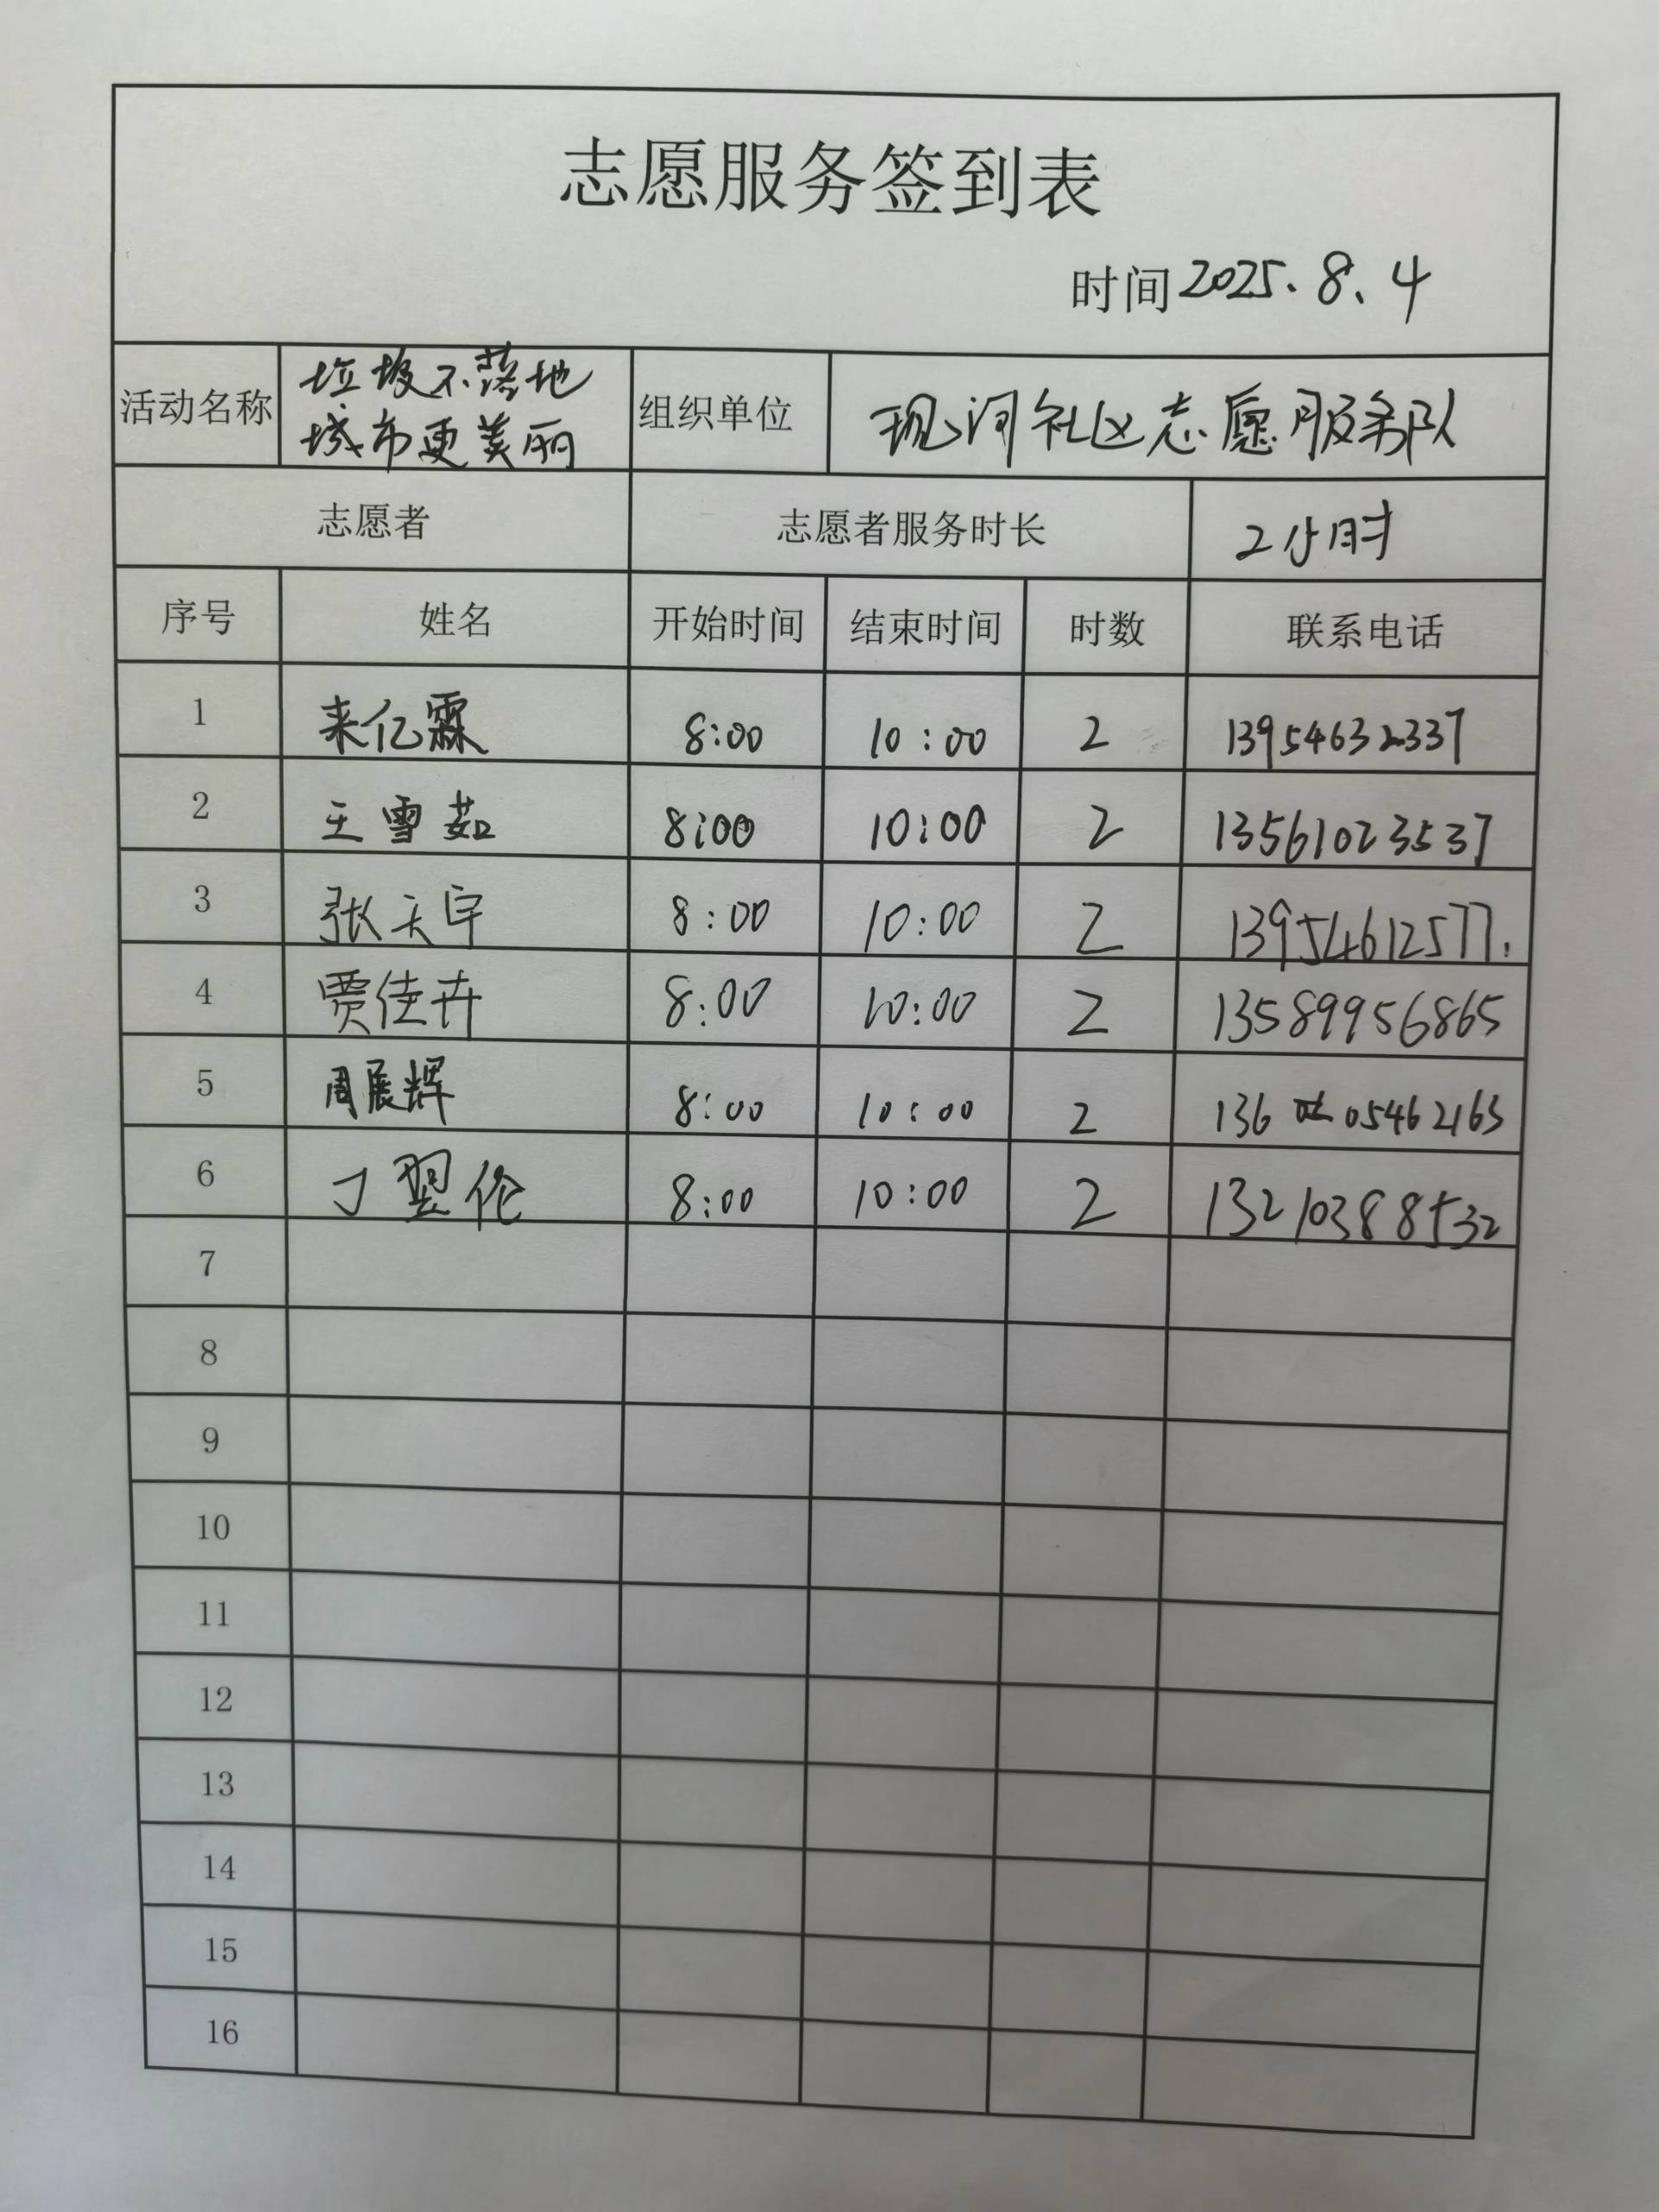 志愿服务签到表
时间 2025.8.4
活动名称 垃圾不落地 城市更美丽 组织单位 现河社区志愿服务队
志愿者 志愿者服务时长 2小时
序号 姓名 开始时间 结束时间 时数 联系电话
1 来亿霖 8:00 10:00 2 13954632337
2 王雪茹 8:00 10:00 2 13561023537
3 张天宇 8:00 10:00 2 13954612577.
4 贾佳卉 8:00 10:00 2 13589956865
5 周展辉 8:00 10:00 2 136 05462163
6 丁翌伦 8:00 10:00 2 13210388532
7
8
9
10
11
12
13
14
15
16